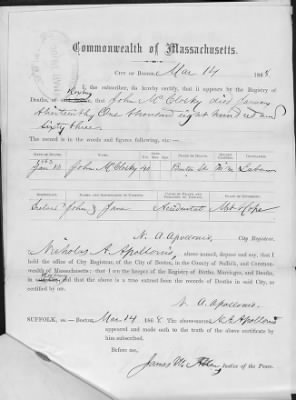 Commonwealth of Massachusetts.
CITY OF BOSTON, Mar 14 1868.
I, the subscriber, do hereby certify, that it appears by the Registry of
Deaths, of said Boston, that John McClosky died January
thirteenth, One thousand eight hundred and
sixty three.
The record is in the words and figures following, etc:—
Jan 13 John McClosky M'n
Ireland John & Jane Accidental Mt Hope
N. A. Apollonio, City Registrar.
Nicholas A. Apollonio, above named, depose and say, that I
hold the office of City Registrar, of the City of Boston, in the County of Suffolk, and Common-
wealth of Massachusetts: that I am the keeper of the Registry of Births, Marriages, and Deaths,
in and that the above is a true extract from the records of Deaths in said City, as certified
by me.
N. A. Apollonio.
SUFFOLK, ss.—Boston, Mar 14 1868. The above-named N. A. Apollonio
appeared and made oath to the truth of the above certificate by
him subscribed.
Before me,
James Justice of the Peace.